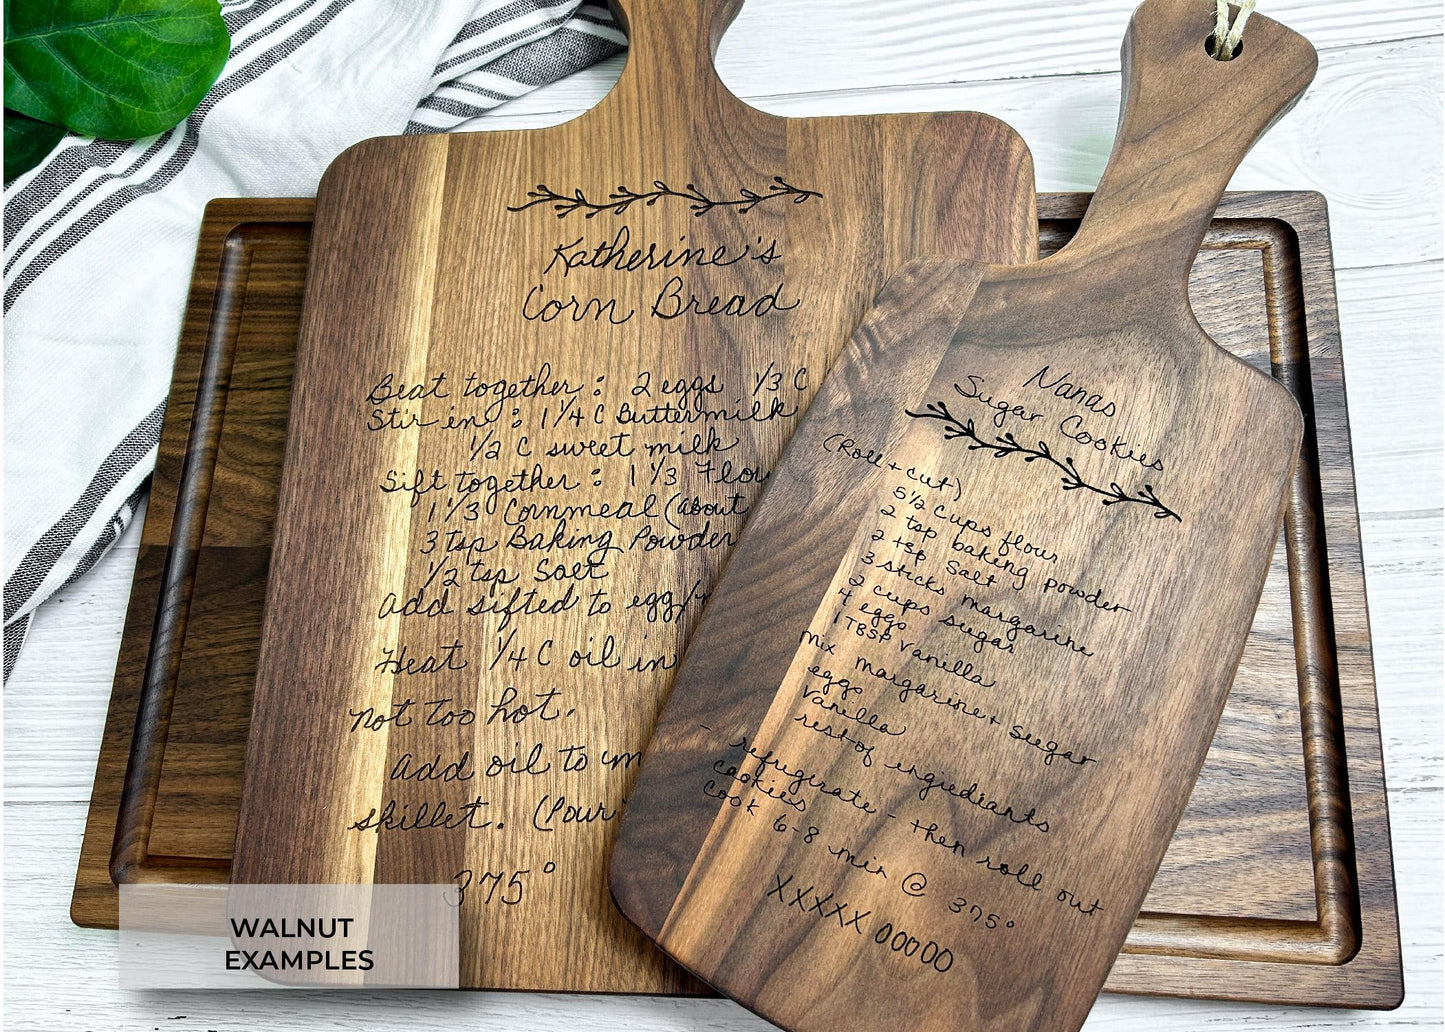 Katherine's
Corn Bread
Beat together: 2 eggs 1/3 C
Stir in: 1 1/4 C Buttermilk
1/2 C sweet milk
Sift together: 1 1/3 Flou
1 1/3 Cornmeal (about
3 tsp Baking Powder
1/2 tsp Salt
add sifted to egg/
Heat 1/4 C oil in
not too hot.
add oil to
skillet. (Pour
375°
Nanas
Sugar Cookies
(Roll + cut)
5 1/2 cups flour
2 tsp baking powder
2 tsp salt
3 sticks margarine
2 cups sugar
4 eggs
1 TBSP vanilla
Mix margarine + sugar
eggs
vanilla
rest of ingrediants
- refrigerate - then roll out
cookies
cook 6-8 min @ 375°
XXXXX OOOOO
WALNUT
EXAMPLES